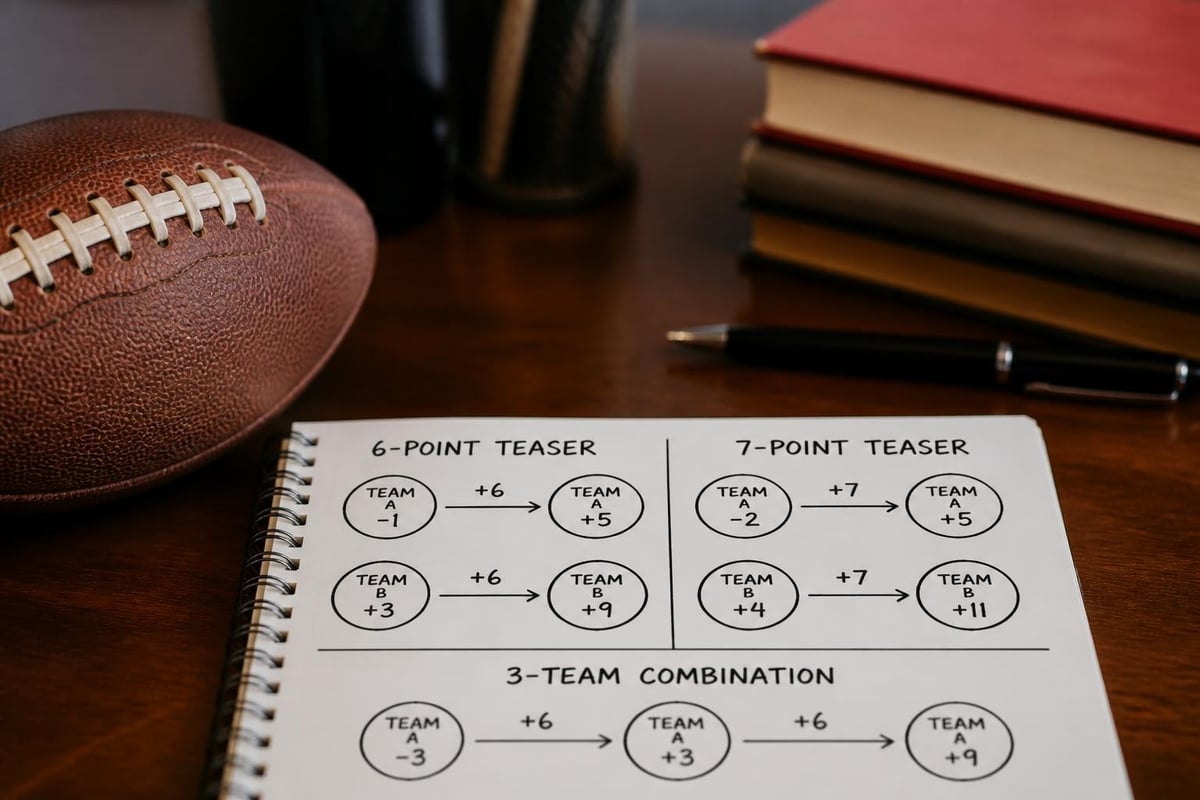 6-POINT TEASER
TEAM
A
-1
+6
TEAM
A
+5
TEAM
B
+3
+6
TEAM
B
+9
7-POINT TEASER
TEAM
A
-2
+7
TEAM
A
+5
TEAM
B
+4
+7
TEAM
B
+11
3-TEAM COMBINATION
TEAM
A
-3
+6
TEAM
A
+3
+6
TEAM
A
+9